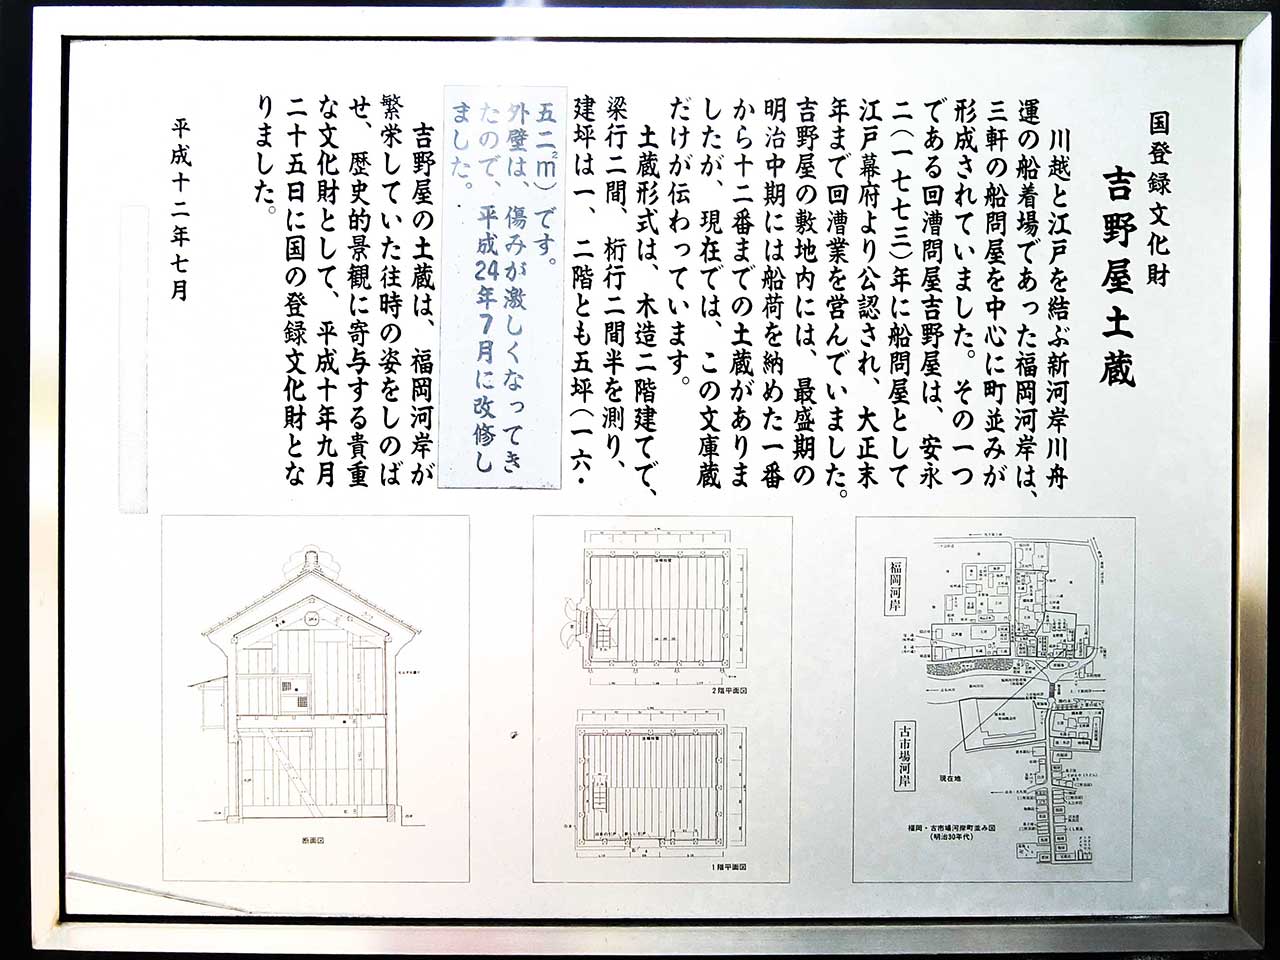 国登録文化財
吉野屋土蔵
川越と江戸を結ぶ新河岸川舟
運の船着場であった福岡河岸は、
三軒の船問屋を中心に町並みが
形成されていました。その一つ
である回漕問屋吉野屋は、安永
二(一七七三)年に船問屋として
江戸幕府より公認され、大正末
年まで回漕業を営んでいました。
吉野屋の敷地内には、最盛期の
明治中期には船荷を納めた一番
から十二番までの土蔵がありま
したが、現在では、この文庫蔵
だけが伝わっています。
土蔵形式は、木造二階建てで、
梁行二間、桁行二間半を測り、
建坪は一、二階とも五坪(一六・
五二㎡)です。
外壁は、傷みが激しくなってき
たので、平成24年7月に改修し
ました。
吉野屋の土蔵は、福岡河岸が
繁栄していた往時の姿をしのば
せ、歴史的景観に寄与する貴重
な文化財として、平成十年九月
二十五日に国の登録文化財とな
りました。
平成十二年七月
福岡河岸
古市場河岸
現在地
福岡・古市場河岸町並み図
(明治30年代)
2階平面図
1階平面図
断面図